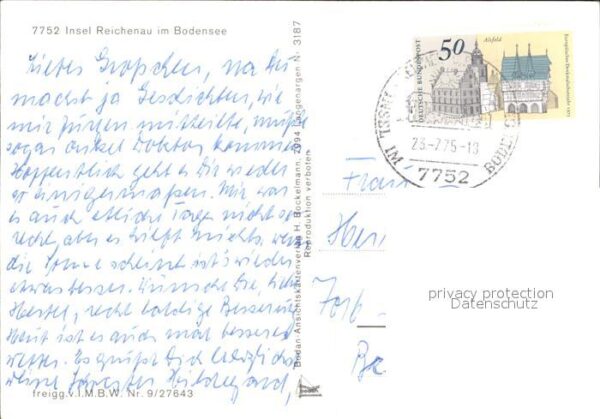 7752 Insel Reichenau im Bodensee
Liebes Gropchen, na du
machst ja Geschichten, wie
mir Jürgen mitteilte, mußte
sogar Onkel Doktor kommen
Hoffentlich geht es Dir wieder
einigermaßen. Mir war
es auch etliche Tage nicht so
recht, aber es hilft nichts, wenn
die Sonne scheint ist's wieder
etwas besser. Wünsche Dir, liebe
Herta, recht baldige Besserung
Heut ist es auch mal besseres
Wetter. Es grüßt Dich herzlichst
Deine Schwester Hildegard,
freigg.v.I.M.B.W. Nr. 9/27643
Bodan-Ansichtskartenverlag H. Bockelmann, 7994 Langenargen Nr. 3187
Reproduktion verboten
50
DEUTSCHE BUNDESPOST
Alsfeld
Europäisches Denkmalschutzjahr 1975
INSEL
23.-7.75-18
IM BODENSEE
7752
privacy protection
Datenschutz